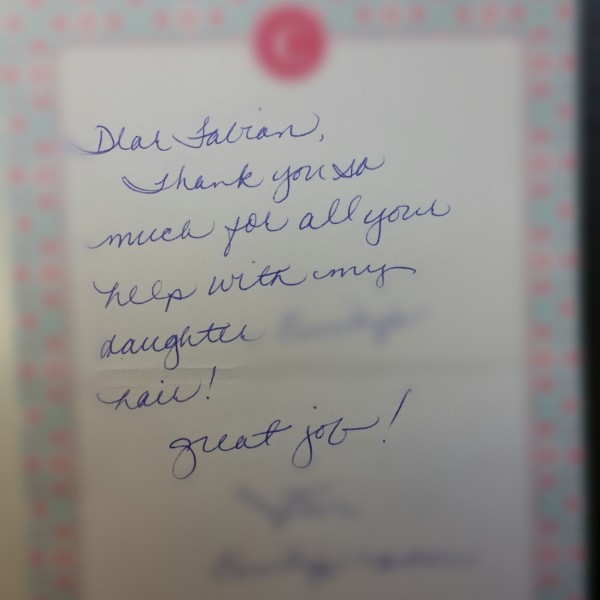 Dear Fabian,
Thank you so
much for all your
help with my
daughter
hair!
great job!